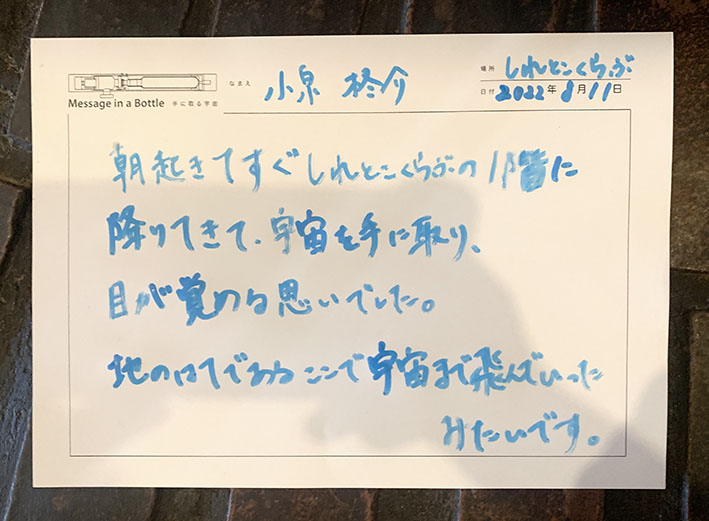 Message in a Bottle 手に取る宇宙
なまえ 小泉 柊介
場所 しれとこくらぶ
日付 2022年 8月11日
朝起きてすぐしれとこくらぶの1階に
降りてきて、宇宙を手に取り、
目が覚める思いでした。
地のはてであるここで宇宙まで飛んでいった
みたいです。